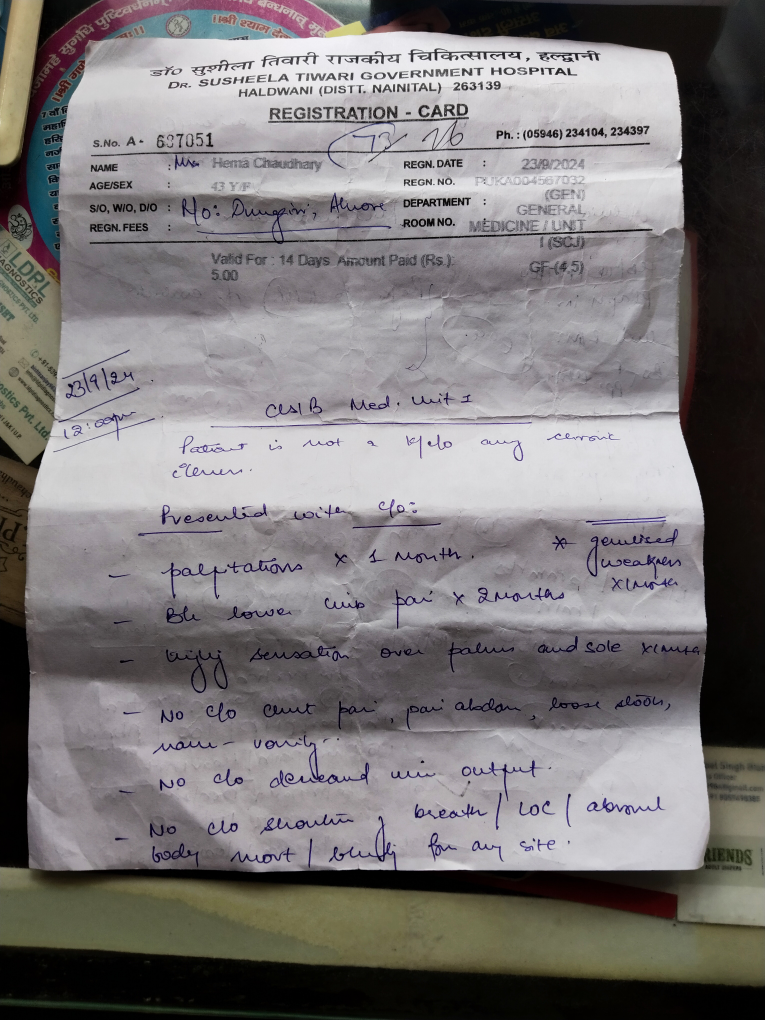 डॉ० सुशीला तिवारी राजकीय चिकित्सालय, हल्द्वानी
DR. SUSHEELA TIWARI GOVERNMENT HOSPITAL
HALDWANI (DISTT. NAINITAL) 263139
REGISTRATION - CARD
S.No. A- 687051
Ph. : (05946) 234104, 234397
NAME : Mrs Hema Chaudhary
REGN. DATE : 23/9/2024
AGE/SEX : 43 Y/F
REGN. NO. PUKA004567032
(GEN)
S/O, W/O, D/O : R/o:
DEPARTMENT : GENERAL
MEDICINE / UNIT
I (SCJ)
REGN. FEES :
ROOM NO. :
Valid For : 14 Days Amount Paid (Rs.):
5.00
GF-(4,5)
23/9/24
12:00pm
C/S/B Med. Unit I
Patient is not a k/c/o any chronic
illness.
Presented with c/o:
- palpitations × 1 Month.
* generalised
weakness
× 1 month
- B/L lower limb pain × 2 months
- tingling sensation over palms and sole × 1 month
- No c/o chest pain, pain abdomen, loose stools,
- No c/o decreased urine output.
- No c/o shortness of breath / LOC / abnormal
body movt / bleeding from any site.
LDPL
DIAGNOSTICS
FRIENDS